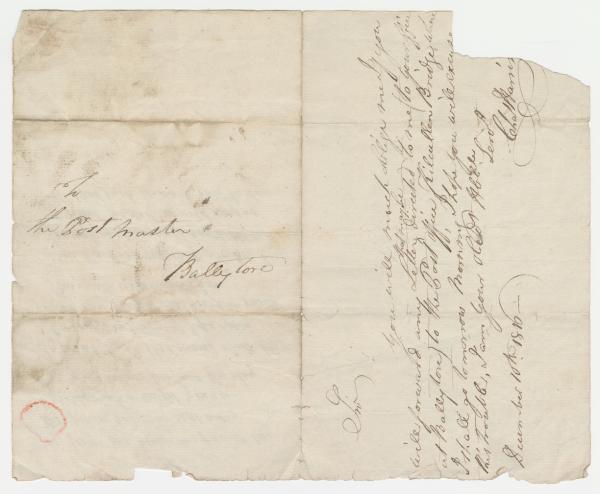 To
the Post Master
Ballytore
Sir
you will much oblige me if you
will forward any Letter directed to me to your office
that may be
at Ballytore to the Post office Kilcullen Bridge where
I shall go tomorrow morning, I hope you will excuse
this trouble, I am your Obdt Hble Servt
Chas
December 10th